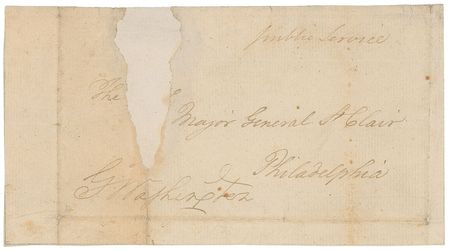 public Service
The
Major General St. Clair
Philadelphia
G:Washington